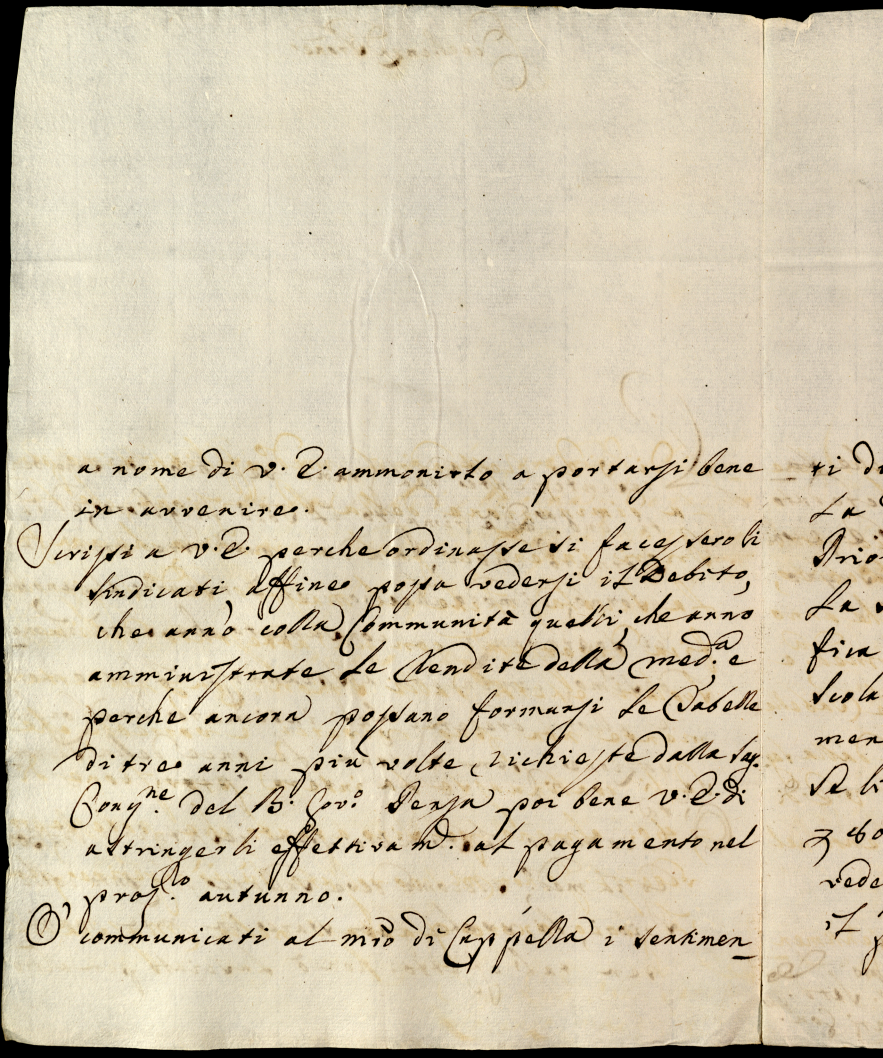 a nome di V. E. ammonirlo a portarsi bene
in avvenire.
Scrissi a V. E. perche ordinasse si facessero li
Sindicati affine possa vedersi il Debito,
che anno colla Communità quelli, che anno
amministrate le Rendite della med.a e
perche ancora possano formarsi le Tabelle
di tre anni più volte richieste dalla Sag.
Cong.ne del B. Gov.o Pensa poi bene V. E. di
astringerli effettivam. al pagamento nel
pros.o autunno.
O' communicati al mro di Cappella i sentimen_
ti di
La
Prio
La
fica
Scola
men
Se li
vede
il